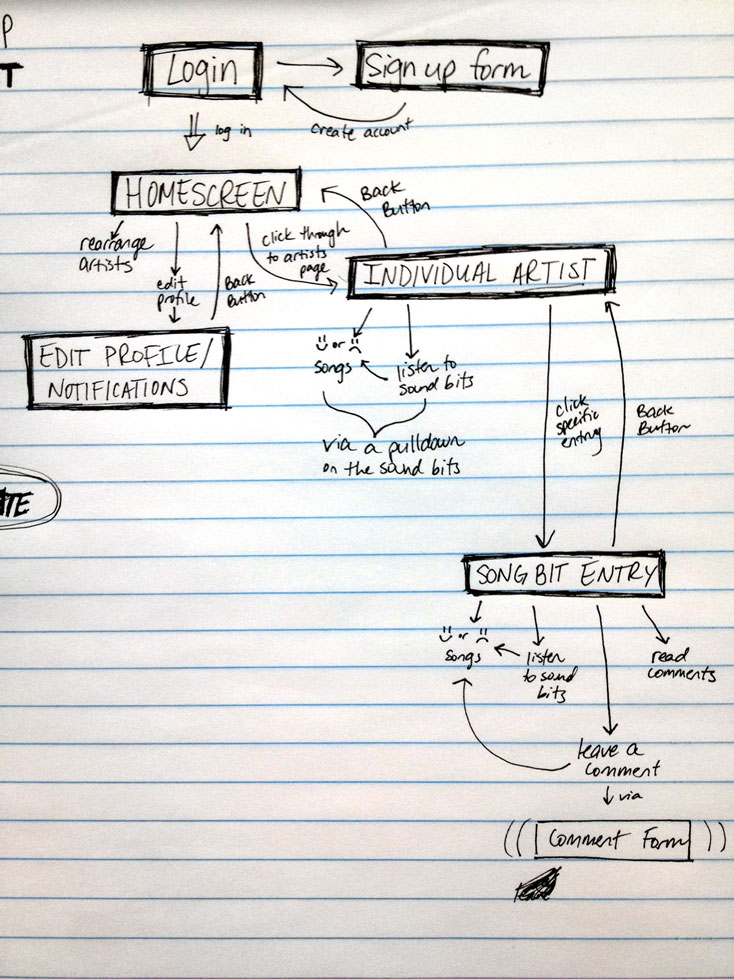 P
T
Login
Sign up form
log in
create account
HOMESCREEN
Back
Button
rearrange
artists
edit
profile
Back
Button
click through
to artists
page
INDIVIDUAL ARTIST
EDIT PROFILE/
NOTIFICATIONS
or
songs
listen to
sound bits
via a pulldown
on the sound bits
click
specific
entry
Back
Button
TE
SONG BIT ENTRY
or
songs
listen
to sound
bits
read
comments
leave a
comment
via
((( Comment Form ))